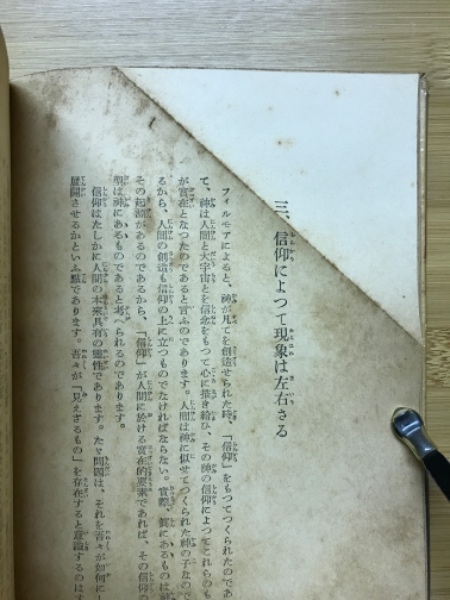 三、信仰によつて現象は左右さる
フィルモアによると、神が凡てを創造せられた時、「信仰」をもつてつくられたのであ
て、神は人間と大宇宙とを信念をもつて心に描き給ひ、その神の信仰によつてこれらのも
が實在となつたのであると言ふのであります。人間は神に似せてつくられた神の子なので
るから、人間の創造も信仰の上に立つものでなければならない。實際、眞にあるものは
その起源があるのであるから、「信仰」が人間に於ける實在的要素であれば、その信仰の
型は神にあるものであると考へられるのであります。
信仰はたしかに人間の本來具有の靈性であります。たゞ問題は、それを吾々が如何に
展開させるかといふ點であります。吾々が「見えざるもの」を存在すると意識するのは